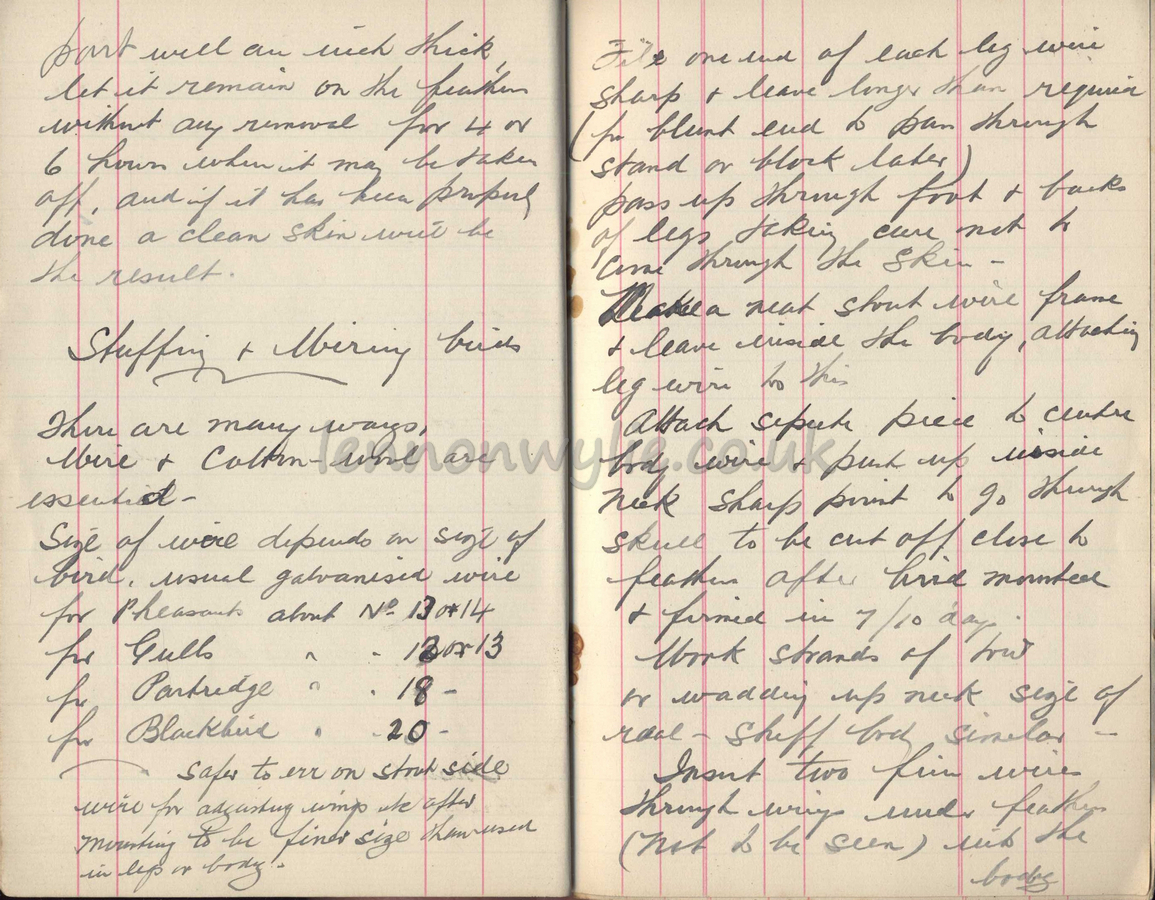 part well an inch thick,
let it remain on the feathers
without any removal for 4 or
6 hours when it may be taken
off, and if it has been properly
done a clean skin will be
the result.
Stuffing & Wiring birds
There are many ways,
Wire & Cotton-wool are
essential -
Size of wire depends on size of
bird. usual galvanised wire
for Pheasants about No 13 or 14
for Gulls " " 12 or 13
for Partridge " " 18 -
for Blackbird " " 20 -
Safer to err on stout side
wire for adjusting wings etc after
mounting to be finer size than used
in legs or body -
File one end of each leg wire
sharp & leave longer than required
(for blunt end to pass through
stand or block later)
pass up through foot & backs
of legs taking care not to
come through the skin -
Make a neat stout wire frame
& leave inside the body, attaching
leg wire to this
Attach seperate piece to centre
body wire & push up inside
neck sharp point to go through
skull to be cut off close to
feathers after bird mounted
& firmed in 7/10 days.
Work strands of tow
or wadding up neck size of
real - stuff body similar -
Insert two fine wires
through wings under feathers
(not to be seen) into the
body
lennonwylie.co.uk